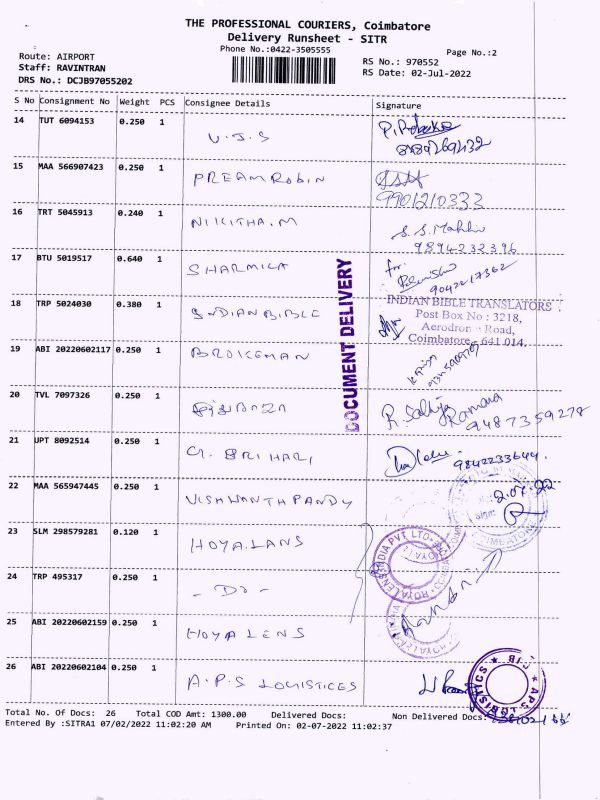 THE PROFESSIONAL COURIERS, Coimbatore
Delivery Runsheet - SITR
Phone No.:0422-3505555
Page No.:2
Route: AIRPORT
Staff: RAVINTRAN
DRS No.: DCJB97055202
RS No.: 970552
RS Date: 02-Jul-2022
S No Consignment No Weight PCS Consignee Details Signature
14 TUT 6094153 0.250 1 V.J.S
15 MAA 566907423 0.250 1 PREAMROBIN
9901210333
16 TRT 5045913 0.240 1 NIKITHA.M
9894232396
17 BTU 5019517 0.640 1 SHARMILA
for.
9042217362
DOCUMENT DELIVERY
18 TRP 5024030 0.380 1 INDIAN BIBLE
INDIAN BIBLE TRANSLATORS
Post Box No : 3218,
Aerodrome Road,
Coimbatore - 641 014.
19 ABI 20220602117 0.250 1 BROIKEMAN
20 TVL 7097326 0.250 1
9487359278
21 UPT 8092514 0.250 1 G. SRI HARI
9842233644
22 MAA 565947445 0.250 1 VISHWANTH PANDY
2.07.22
Sign:
23 SLM 298579281 0.120 1 HOYA.LANS
24 TRP 495317 0.250 1 - Do -
25 ABI 20220602159 0.250 1 HOYA LENS
26 ABI 20220602104 0.250 1 A.P.S LOGISTICES
APS LOGISTICS
Total No. Of Docs: 26 Total COD Amt: 1300.00 Delivered Docs: Non Delivered Docs:
Entered By :SITRA1 07/02/2022 11:02:20 AM Printed On: 02-07-2022 11:02:37